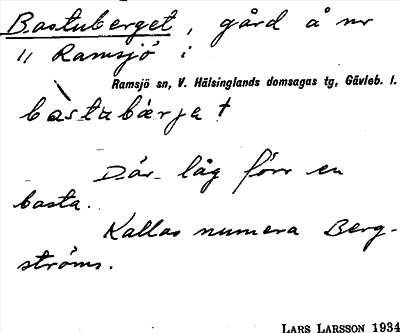 Bastuberget, gård å nr
11 Ramsjö i
Ramsjö sn, V. Hälsinglands domsagas tg, Gävleb. l.
bàstubærja †
Där låg förr en
basta.
Kallas numera Berg-
ströms.
LARS LARSSON 1934